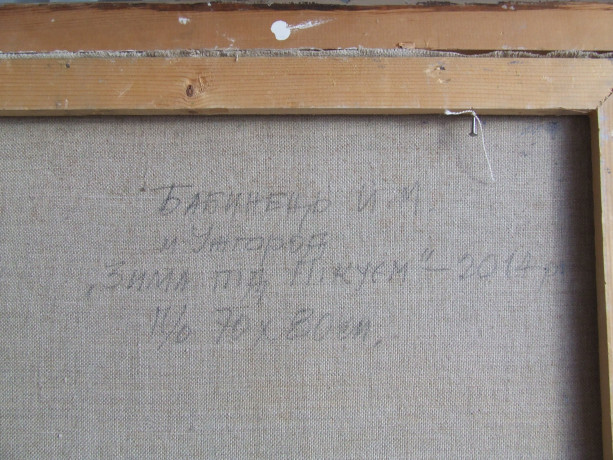 Бабинець И М.
м Ужгород
„Зима під Пікуєм" – 2014 р
П/о 70 х 80 см.